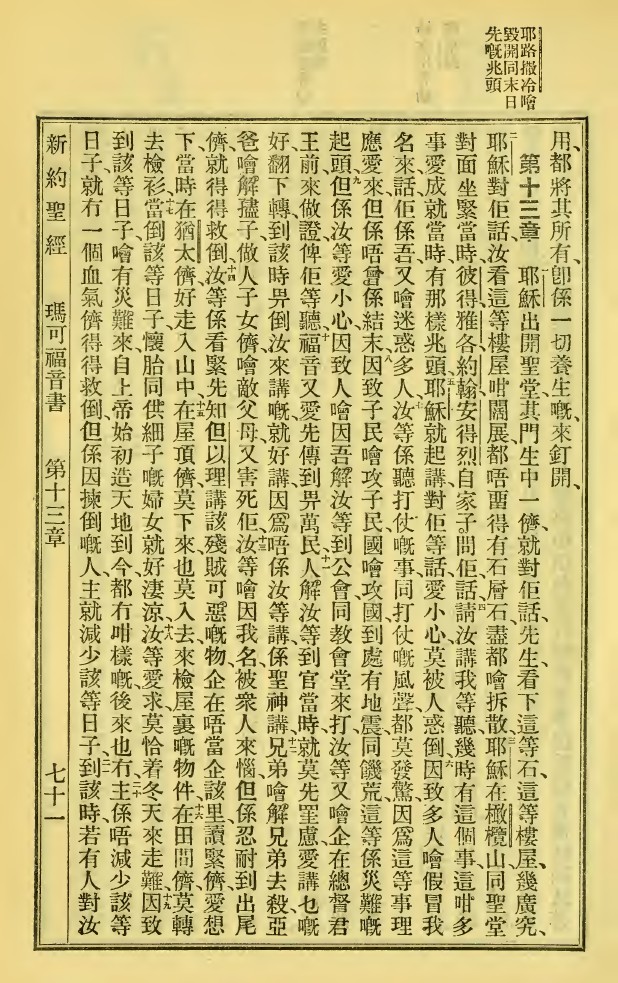 耶路撒冷噲
毀開同末日
先嘅兆頭
用、都將其所有、卽係一切養生嘅來釘開、
第十三章 一耶穌出開聖堂、其門生中一儕、就對佢話、先生看下這等石、這等樓屋、幾廣究、
二耶穌對佢話、汝看這等樓屋咁闊展、都唔畱得有石層石、盡都噲拆散、三耶穌在橄欖山同聖堂
對面坐緊、當時彼得雅各約翰安得烈自家子問佢話、四請汝講我等聽、幾時有這個事、這咁多
事愛成就、當時有那樣兆頭、五耶穌就起講、對佢等話、愛小心、莫被人惑倒、六因致多人噲假冒我
名來、話佢係吾、又噲迷惑多人、七汝等係聽打仗嘅事、同打仗嘅風聲、都莫發驚、因爲這等事理
應愛來、但係唔曾係結末、八因致子民噲攻子民、國噲攻國、到處有地震同饑荒、這等係災難嘅
起頭、九但係汝等愛小心、因致人噲因吾解汝等到公會、同教會堂來打汝等、又噲企在總督君
王前來做證、俾佢等聽、十福音又愛先傳到畀萬民、十一人解汝等到官當時、就莫先罣慮愛講乜嘅
好、翻下轉到該時畀倒汝來講嘅就好講、因爲唔係汝等講、係聖神講、十二兄弟噲解兄弟去殺、亞
爸噲解孻子、做人子女儕、噲敵父母、又害死佢、十三汝等噲因我名、被衆人來惱、但係忍耐到出尾
儕、就得得救倒、十四汝等係看緊先知但以理講、該殘賊可惡嘅物、企在唔當企該里、讀緊儕、愛想
下、當時在猶太儕、好走入山中、十五在屋頂儕、莫下來、也莫入去來檢屋裏嘅物件、十六在田間儕、莫轉
去檢衫、十七當倒該等日子、懷胎同供細子嘅婦女、就好淒涼、十八汝等愛求、莫恰着冬天來走難、十九因致
到該等日子、噲有災難來、自上帝始初造天地到今、都冇咁樣嘅、後來也冇、二十主係唔減少該等
日子、就冇一個血氣儕得得救倒、但係因揀倒嘅人、主就減少該等日子、二一到該時、若有人對汝
新約聖經 瑪可福音書 第十三章 七十一